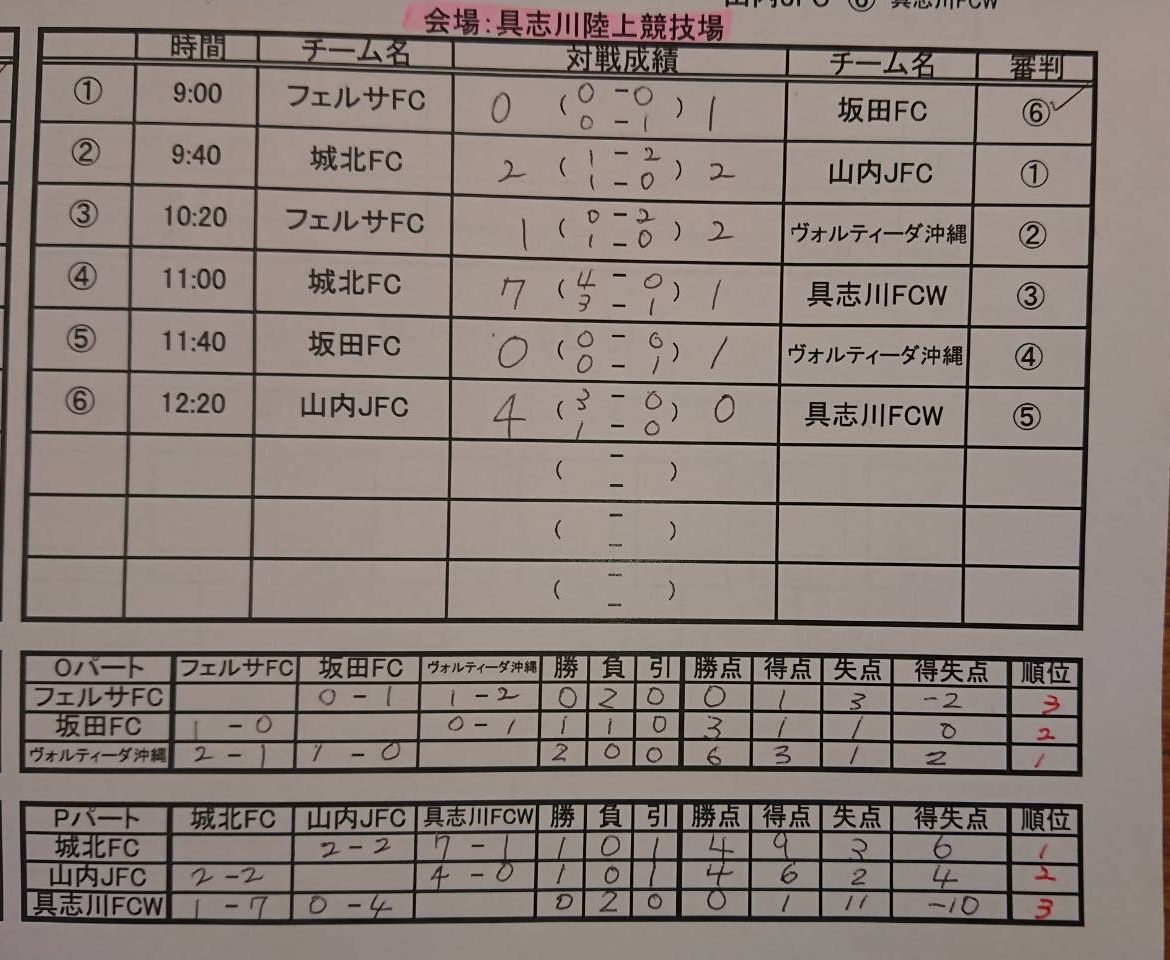 山内JFC ⑥ 具志川FCW
会場：具志川陸上競技場
時間 チーム名 対戦成績 チーム名 審判
① 9:00 フェルサFC 0 (0-0 0-1) 1 坂田FC ⑥
② 9:40 城北FC 2 (1-2 1-0) 2 山内JFC ①
③ 10:20 フェルサFC 1 (0-2 1-0) 2 ヴォルティーダ沖縄 ②
④ 11:00 城北FC 7 (4-0 3-1) 1 具志川FCW ③
⑤ 11:40 坂田FC 0 (0-0 0-1) 1 ヴォルティーダ沖縄 ④
⑥ 12:20 山内JFC 4 (3-0 1-0) 0 具志川FCW ⑤
( - - )
( - - )
( - - )
Oパート フェルサFC 坂田FC ヴォルティーダ沖縄 勝 負 引 勝点 得点 失点 得失点 順位
フェルサFC 0-1 1-2 0 2 0 0 1 3 -2 3
坂田FC 1-0 0-1 1 1 0 3 1 1 0 2
ヴォルティーダ沖縄 2-1 1-0 2 0 0 6 3 1 2 1
Pパート 城北FC 山内JFC 具志川FCW 勝 負 引 勝点 得点 失点 得失点 順位
城北FC 2-2 7-1 1 0 1 4 9 3 6 1
山内JFC 2-2 4-0 1 0 1 4 6 2 4 2
具志川FCW 1-7 0-4 0 2 0 0 1 11 -10 3